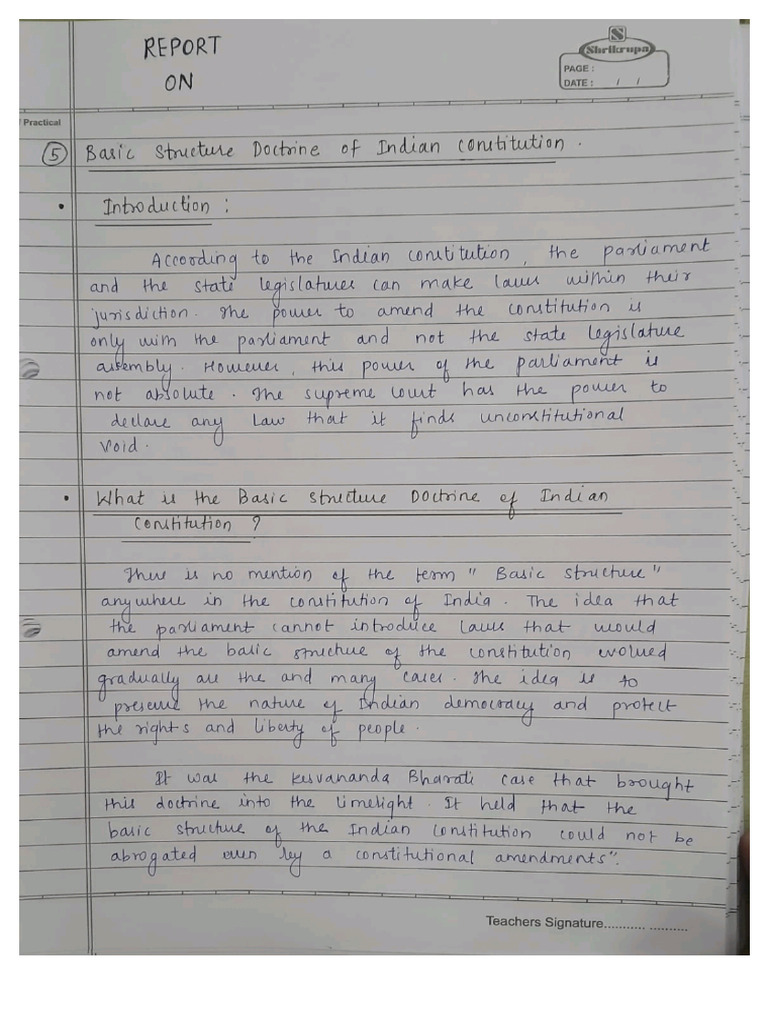 REPORT
ON
S
Shrikrupa
PAGE :
DATE : / /
Practical
5 Basic Structure Doctrine of Indian Constitution.
• Introduction :
According to the Indian constitution, the parliament
and the state legislatures can make laws within their
jurisdiction. The power to amend the constitution is
only with the parliament and not the state legislature
assembly. However, this power of the parliament is
not absolute. The supreme court has the power to
declare any Law that it finds unconstitutional
void.
• What is the Basic structure Doctrine of Indian
Constitution ?
There is no mention of the term "Basic structure"
anywhere in the constitution of India. The idea that
the parliament cannot introduce laws that would
amend the basic structure of the constitution evolved
gradually are the and many cases. The idea is to
preserve the nature of Indian democracy and protect
the rights and liberty of people.
It was the Kesvananda Bharati case that brought
this doctrine into the limelight. It held that the
basic structure of the Indian constitution could not be
abrogated even by a constitutional amendments".
Teachers Signature........... ..........